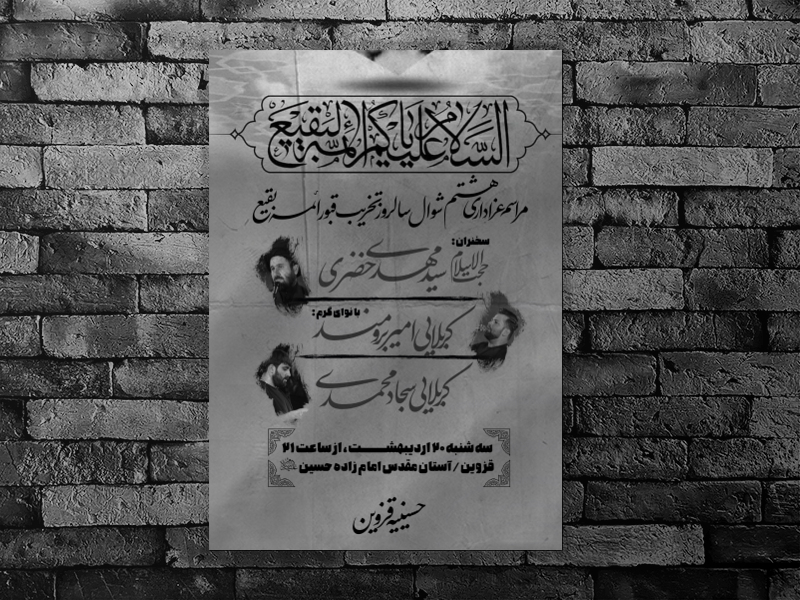 السلام علیکم یا ائمة البقیع
مراسم عزاداری هشتم شوال سالروز تخریب قبور ائمه بقیع
سخنران:
حجت الاسلام سید مهدی خضری
با نوای گرم:
کربلایی امیر برومند
کربلایی سجاد محمدی
سه شنبه ۲۰ اردیبهشت، از ساعت ۲۱
قزوین / آستان مقدس امام زاده حسین
حسینیه قزوین